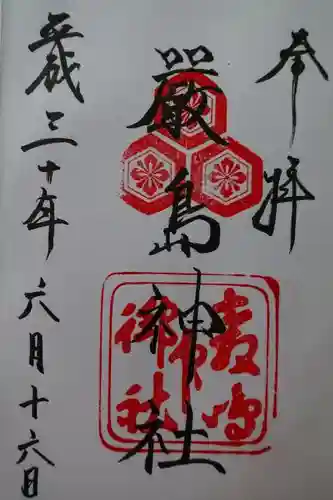 奉拝
嚴島神社
平成三十年六月十六日